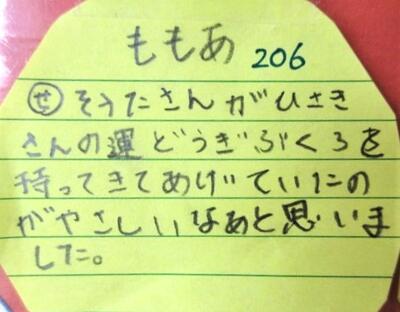 ももあ 206
せ そうたさんがひさき
さんの運どうぎぶくろを
持ってきてあげていたの
がやさしいなあと思いま
した。